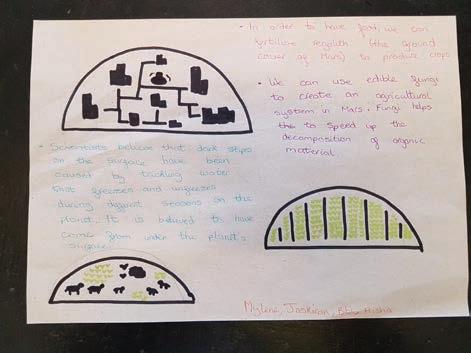 • In order to have food, we can
fertilise regolith (the ground
cover of Mars) to produce crops
• We can use edible fungi
to create an agricultural
system in Mars. Fungi helps
to speed up the
decomposition of organic
material
• Scientists believe that dark strips
on the surface have been
caused by trickling water
that freezes and unfreezes
during different seasons on the
planet. It is believed to have
come from under the planet's
surface.
Mylene, Jaskiran, Aisha